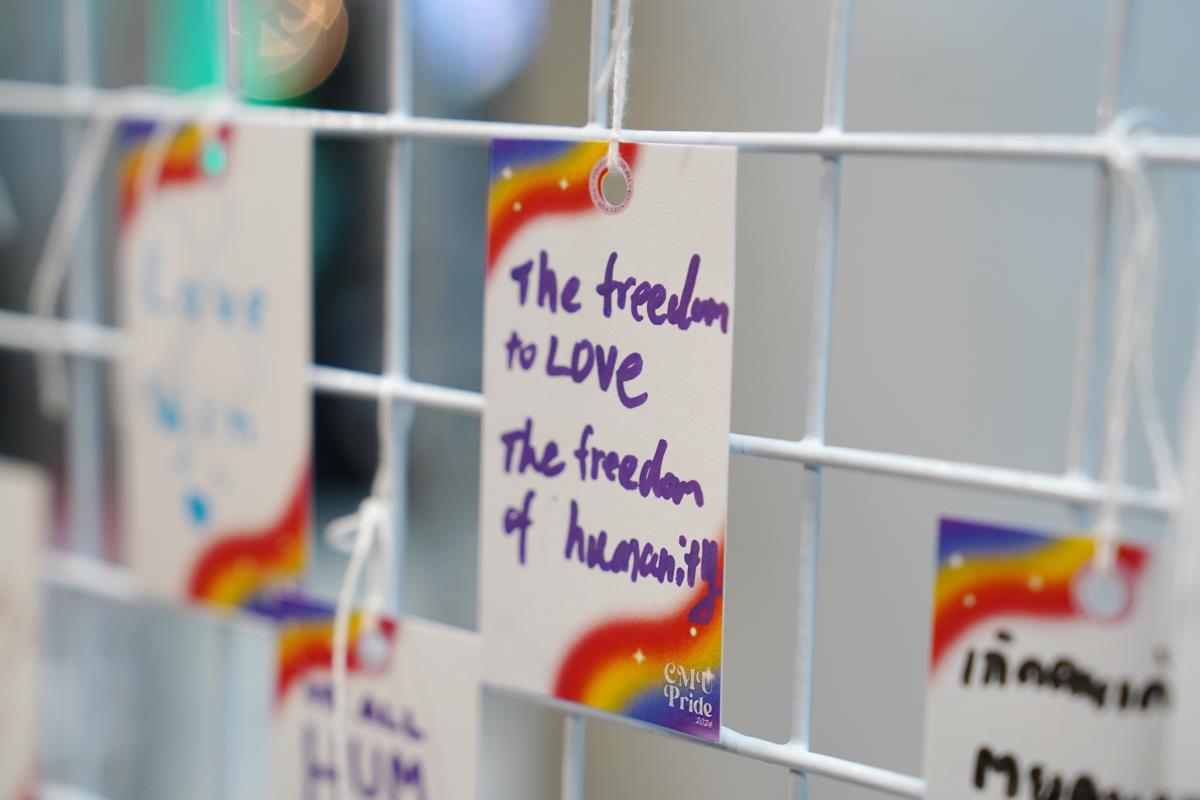 The freedom
to LOVE
The freedom
of humanity
CMU
Pride
2024
Love
Win
ALL
HUM